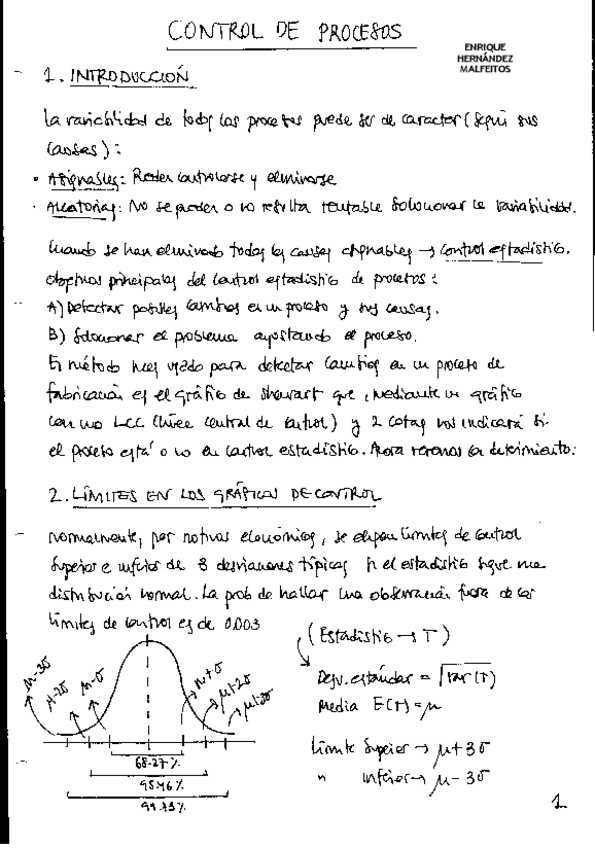 CONTROL DE PROCESOS
ENRIQUE
HERNÁNDEZ
MALFEITOS
1. INTRODUCCIÓN
La variabilidad de todos los procesos puede ser de caracter (según sus
causas):
· Asignables: Poder controlarse y eliminarse
· Aleatorias: No se pueden o no resulta rentable solucionar la variabilidad.
Cuando se han eliminado todas las causas asignables → control estadístico.
Objetivos principales del control estadístico de procesos:
A) Detectar posibles cambios en un proceso y sus causas.
B) Solucionar el problema ajustando el proceso.
El método más usado para detectar cambios en un proceso de
fabricación es el gráfico de Shewart que, mediante un gráfico
con una LCC (línea central de control) y 2 cotas nos indicará si
el proceso está o no en control estadístico. Ahora veremos con detenimiento:
2. LÍMITES EN LOS GRÁFICOS DE CONTROL
Normalmente, por motivos económicos, se eligen límites de control
superior e inferior de 3 desviaciones típicas si el estadístico sigue una
distribución normal. La prob de hallar una observación fuera de los
límites de control es de 0.003
μ-3σ μ-2σ μ-σ μ+σ μ+2σ μ+3σ
68.27%
95.46%
99.73%
(Estadístico → T)
Desv. estándar = √var(T)
Media E(T) = μ
Límite Superior → μ+3σ
" inferior → μ-3σ
1